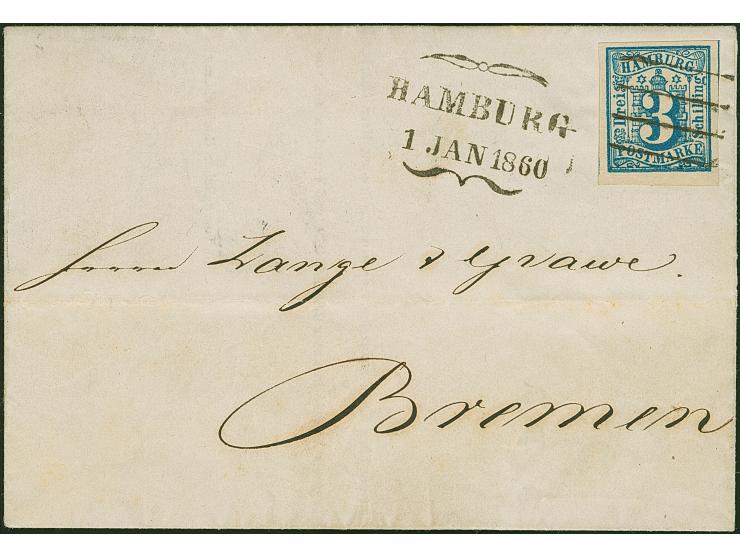 HAMBURG
1 JAN 1860
HAMBURG
Drei
3
Schilling
POSTMARKE
Herrn Lange &
Bremen